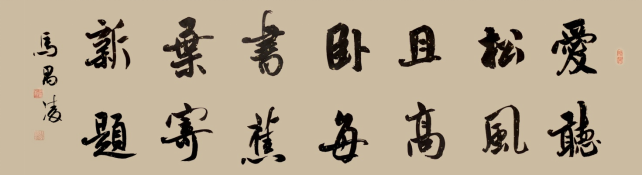 愛聽
松風
且高
卧每
書蕉
葉寄
新題
馬凌